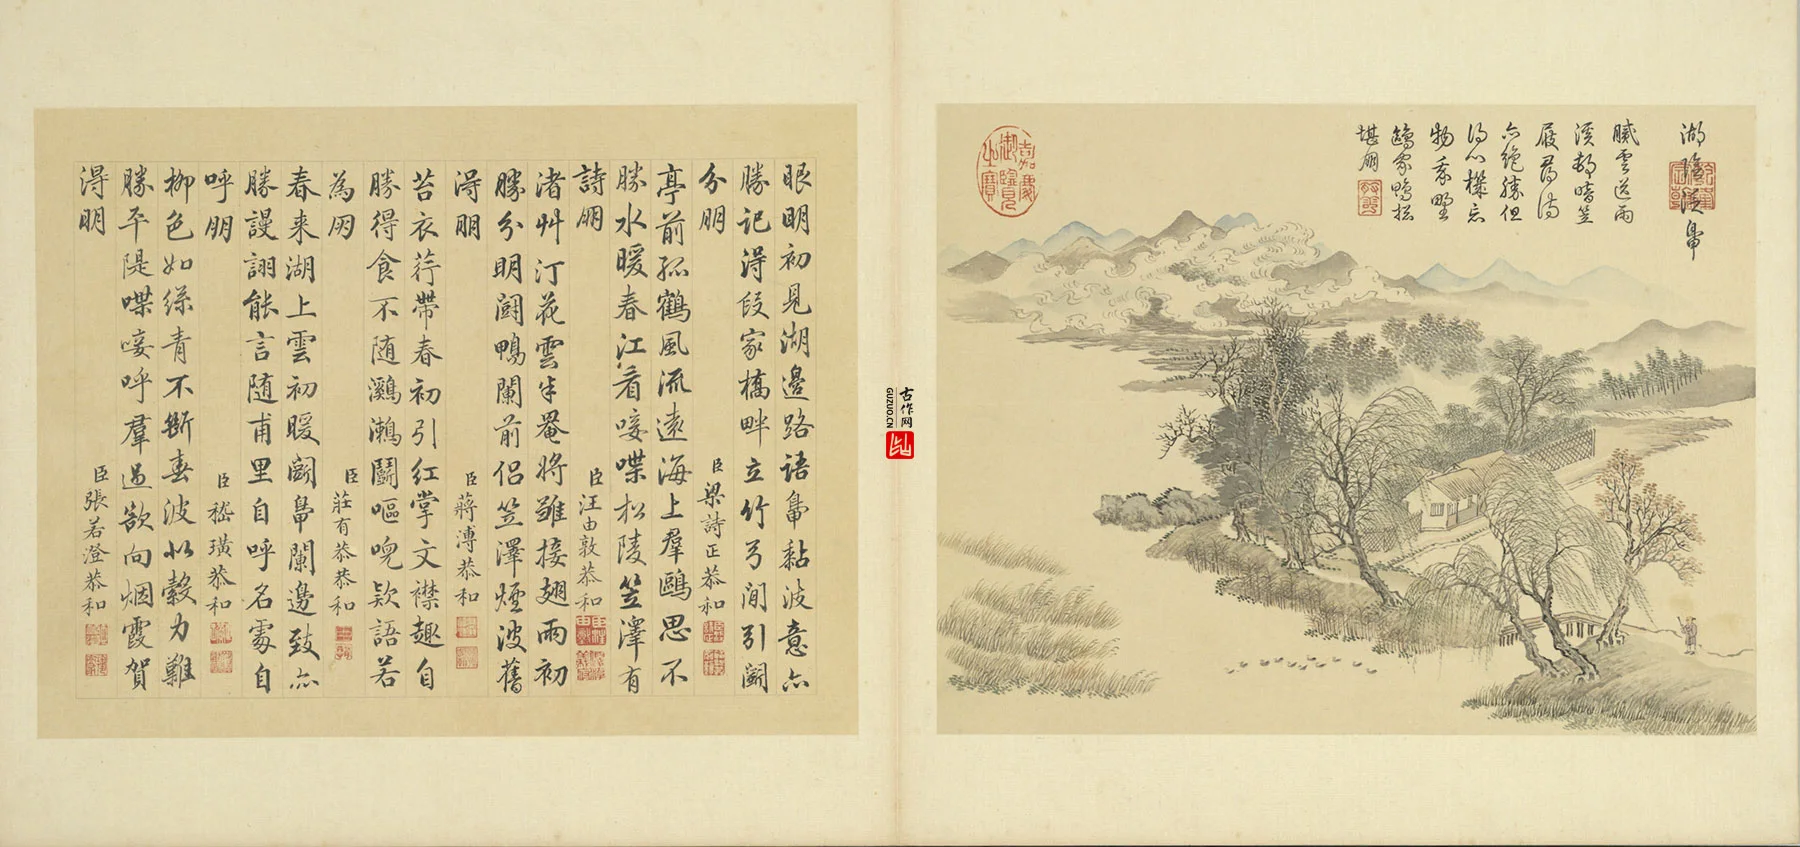 湖
鳧
膩雲送雨
溪晴笠
屐尋詩
亦絕勝但
得心機忘
物我野
鷗家鴨總
堪朋
嘉慶
御覽
之寶
古作网
GUZUO.CN
眼明初見湖邊路語鳧黏波意亦
勝記得段家橋畔立竹弓間引闘
分朋 臣梁詩正恭和
亭前孤鶴風流遠海上羣鷗思不
勝水暖春江看唼喋松陵笠澤有
詩朋 臣汪由敦恭和
渚艸汀花雲半罨將雛接翅雨初
勝分明闘鴨闌前侶笠澤煙波舊
得朋 臣蔣溥恭和
苔衣荇帶春初引紅掌文襟趣自
勝得食不随鸂鶒鬭嘔欵語若
為朋 臣莊有恭恭和
春来湖上雲初暖闘鳧闌邊致亦
勝謾詡能言随甫里自呼名處自
呼朋 臣嵇璜恭和
柳色如絲青不斷春波似縠力難
勝平隄喋唼呼羣過欲向烟霞賀
得朋 臣張若澄恭和